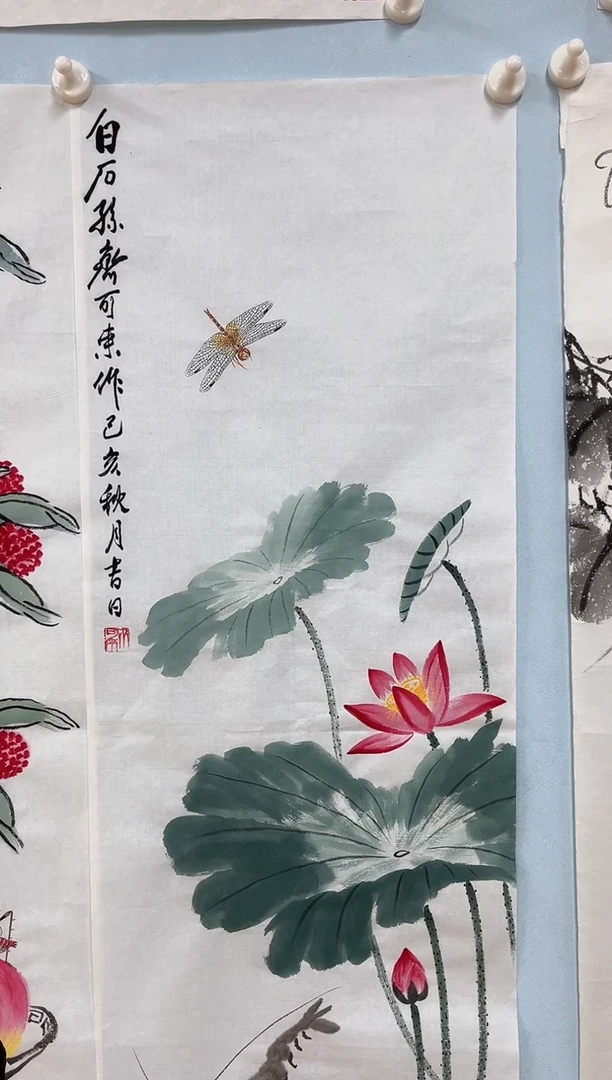 白石孫齊可来作己亥秋月吉日